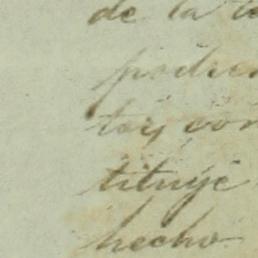 de la
podie
toy con
tituye
hecho